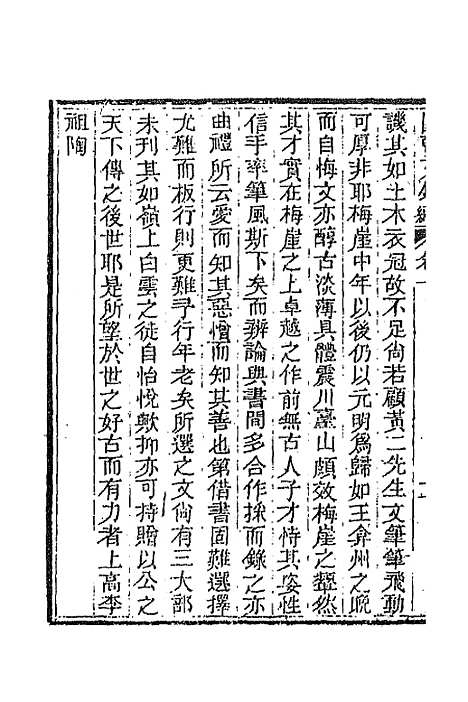 譏其如土木衣冠故不足尚若顧黃二先生文筆筆飛動
可厚非耶梅崖中年以後仍以元明爲歸如王弇州之晩
而自悔文亦醇古淡薄具體震川臺山頗效梅崖之顰然
其才實在梅崖之上卓越之作前無古人子才恃其姿性
信手率筆風斯下矣而辨論與書間多合作採而錄之亦
曲禮所云愛而知其惡憎而知其善也第借書固難選擇
尤難而板行則更難予行年老矣所選之文尙有三大部
未刊其如嶺上白雲之徒自怡悅歟抑亦可持贈以公之
天下傳之後世耶是所望於世之好古而有力者上高李
祖陶